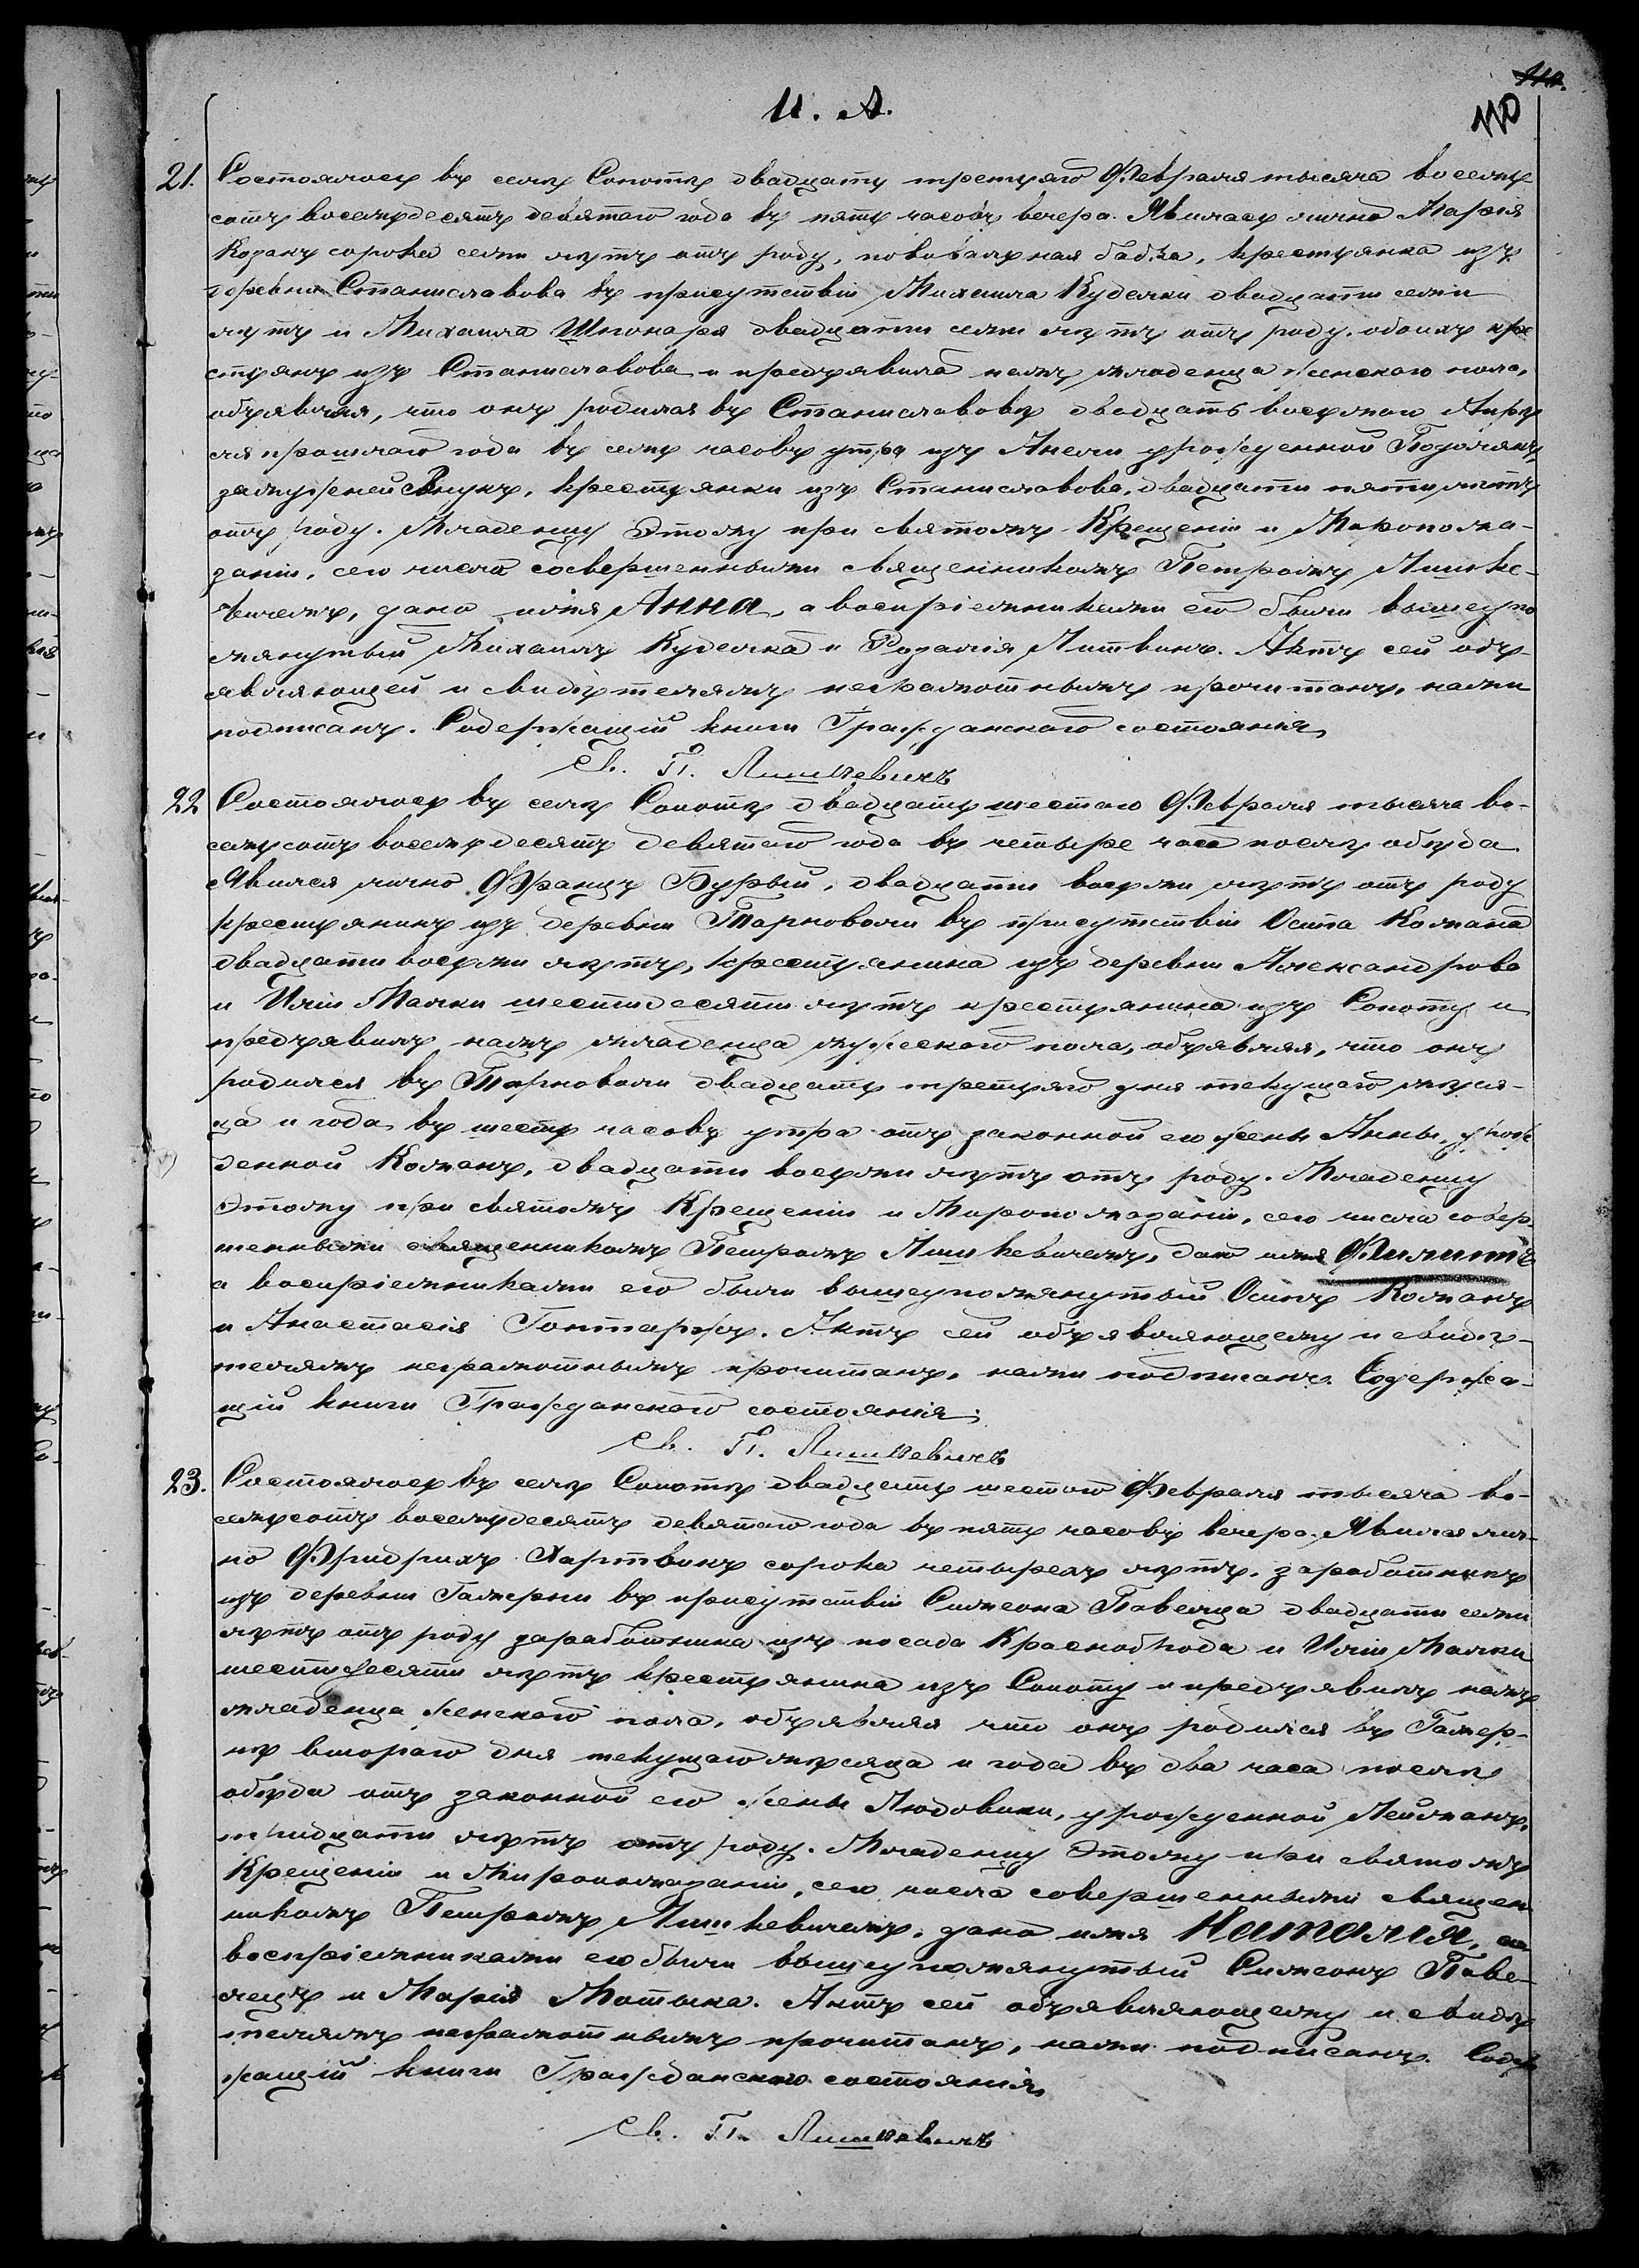 110.
110
И. А.
21. Состоялось въ селѣ Сопотѣ двадцать третьяго Февраля тысяча восемь
сотъ восемьдесятъ девятаго года въ пять часовъ вечера. Явилась лично Марія
Козакъ сорока семи лѣтъ отъ роду, повивальная бабка, крестьянка изъ
деревни Станиславова въ присутствіи Михаила Куделки двадцати семи
лѣтъ и Михаила двадцати семи лѣтъ отъ роду, обоихъ кре
стьянъ изъ Станиславова и предъявила намъ младенца женскаго пола,
объявляя, что онъ родился въ Станиславовѣ двадцать восьмаго Апрѣ
ля прошлаго года въ семь часовъ утра изъ Анели урожденной
замужней Внукъ, крестьянки изъ Станиславова, двадцати пяти лѣтъ
отъ роду. Младенцу Этому при святомъ Крещеніи и Миропома-
заніи, сего числа совершенными священникомъ Петромъ Лишке-
вичемъ, дано имя Анна, а воспріемниками его были вышеупо
мянутый Михаилъ Куделка и Розалія Литвинъ. Актъ сей объ-
являющей и свидѣтелямъ неграмотнымъ прочитанъ, нами
подписанъ. Содержащій книги Гражданскаго состоянія
Св. П. Лишкевичъ
22 Состоялось въ селѣ Сопотѣ двадцать шестаго Февраля тысяча во-
семьсотъ восемьдесятъ девятаго года въ четыре часа послѣ обѣда.
Явился лично Францъ Бурый, двадцати восьми лѣтъ отъ роду
крестьянинъ изъ деревни Тарноволи въ присутствіи Осипа Колмана
двадцати восьми лѣтъ, крестьянина изъ деревни Александрова
и Иліи Малки шестидесяти лѣтъ крестьянина изъ Сопоту и
предъявилъ намъ младенца мужескаго пола, объявляя, что онъ
родился въ Тарноволи двадцать третьяго дня текущаго мѣся-
ца и года въ шесть часовъ утра отъ законной его жены Анны, урож
денной Колманъ, двадцати восьми лѣтъ отъ роду. Младенцу
Этому при святомъ Крещеніи и Миропомазаніи, сего числа совер-
шенными священникомъ Петромъ Лишкевичемъ, дано имя Филиппъ
а воспріемниками его были вышеупомянутый Осипъ Колманъ
и Анастасія Гонтаржъ. Актъ сей объявляющему и свидѣ-
телямъ неграмотнымъ прочитанъ, нами подписанъ. Содержа-
щій книги Гражданскаго состоянія
Св. П. Лишкевичъ
23. Состоялось въ селѣ Сопотѣ двадцать шестаго Февраля тысяча во-
семьсотъ восемьдесятъ девятаго года въ пять часовъ вечера. Явился лич-
но Фридрихъ Хартвикъ сорока четырехъ лѣтъ, заработникъ
изъ деревни Гамерни въ присутствіи Симеона Павелца двадцати семи
лѣтъ отъ роду заработника изъ посада Красноброда и Иліи Малки
шестидесяти лѣтъ крестьянина изъ Сопоту и предъявилъ намъ
младенца женскаго пола, объявляя что онъ родился въ Гамер-
нѣ втораго дня текущаго мѣсяца и года въ два часа послѣ
обѣда отъ законной его жены Людовики, урожденной Лейманъ,
тридцати лѣтъ отъ роду. Младенцу Этому при святомъ
Крещеніи и Миропомазаніи, сего числа совершенными священ
никомъ Петромъ Лишкевичемъ, дано имя Наталія, а
воспріемниками его были вышеупомянутый Симеонъ Паве-
лецъ и Марія Мотыка. Актъ сей объявляющему и свидѣ
телямъ неграмотнымъ прочитанъ, нами подписанъ. Содер
жащій книги Гражданскаго состоянія
Св. П. Лишкевичъ